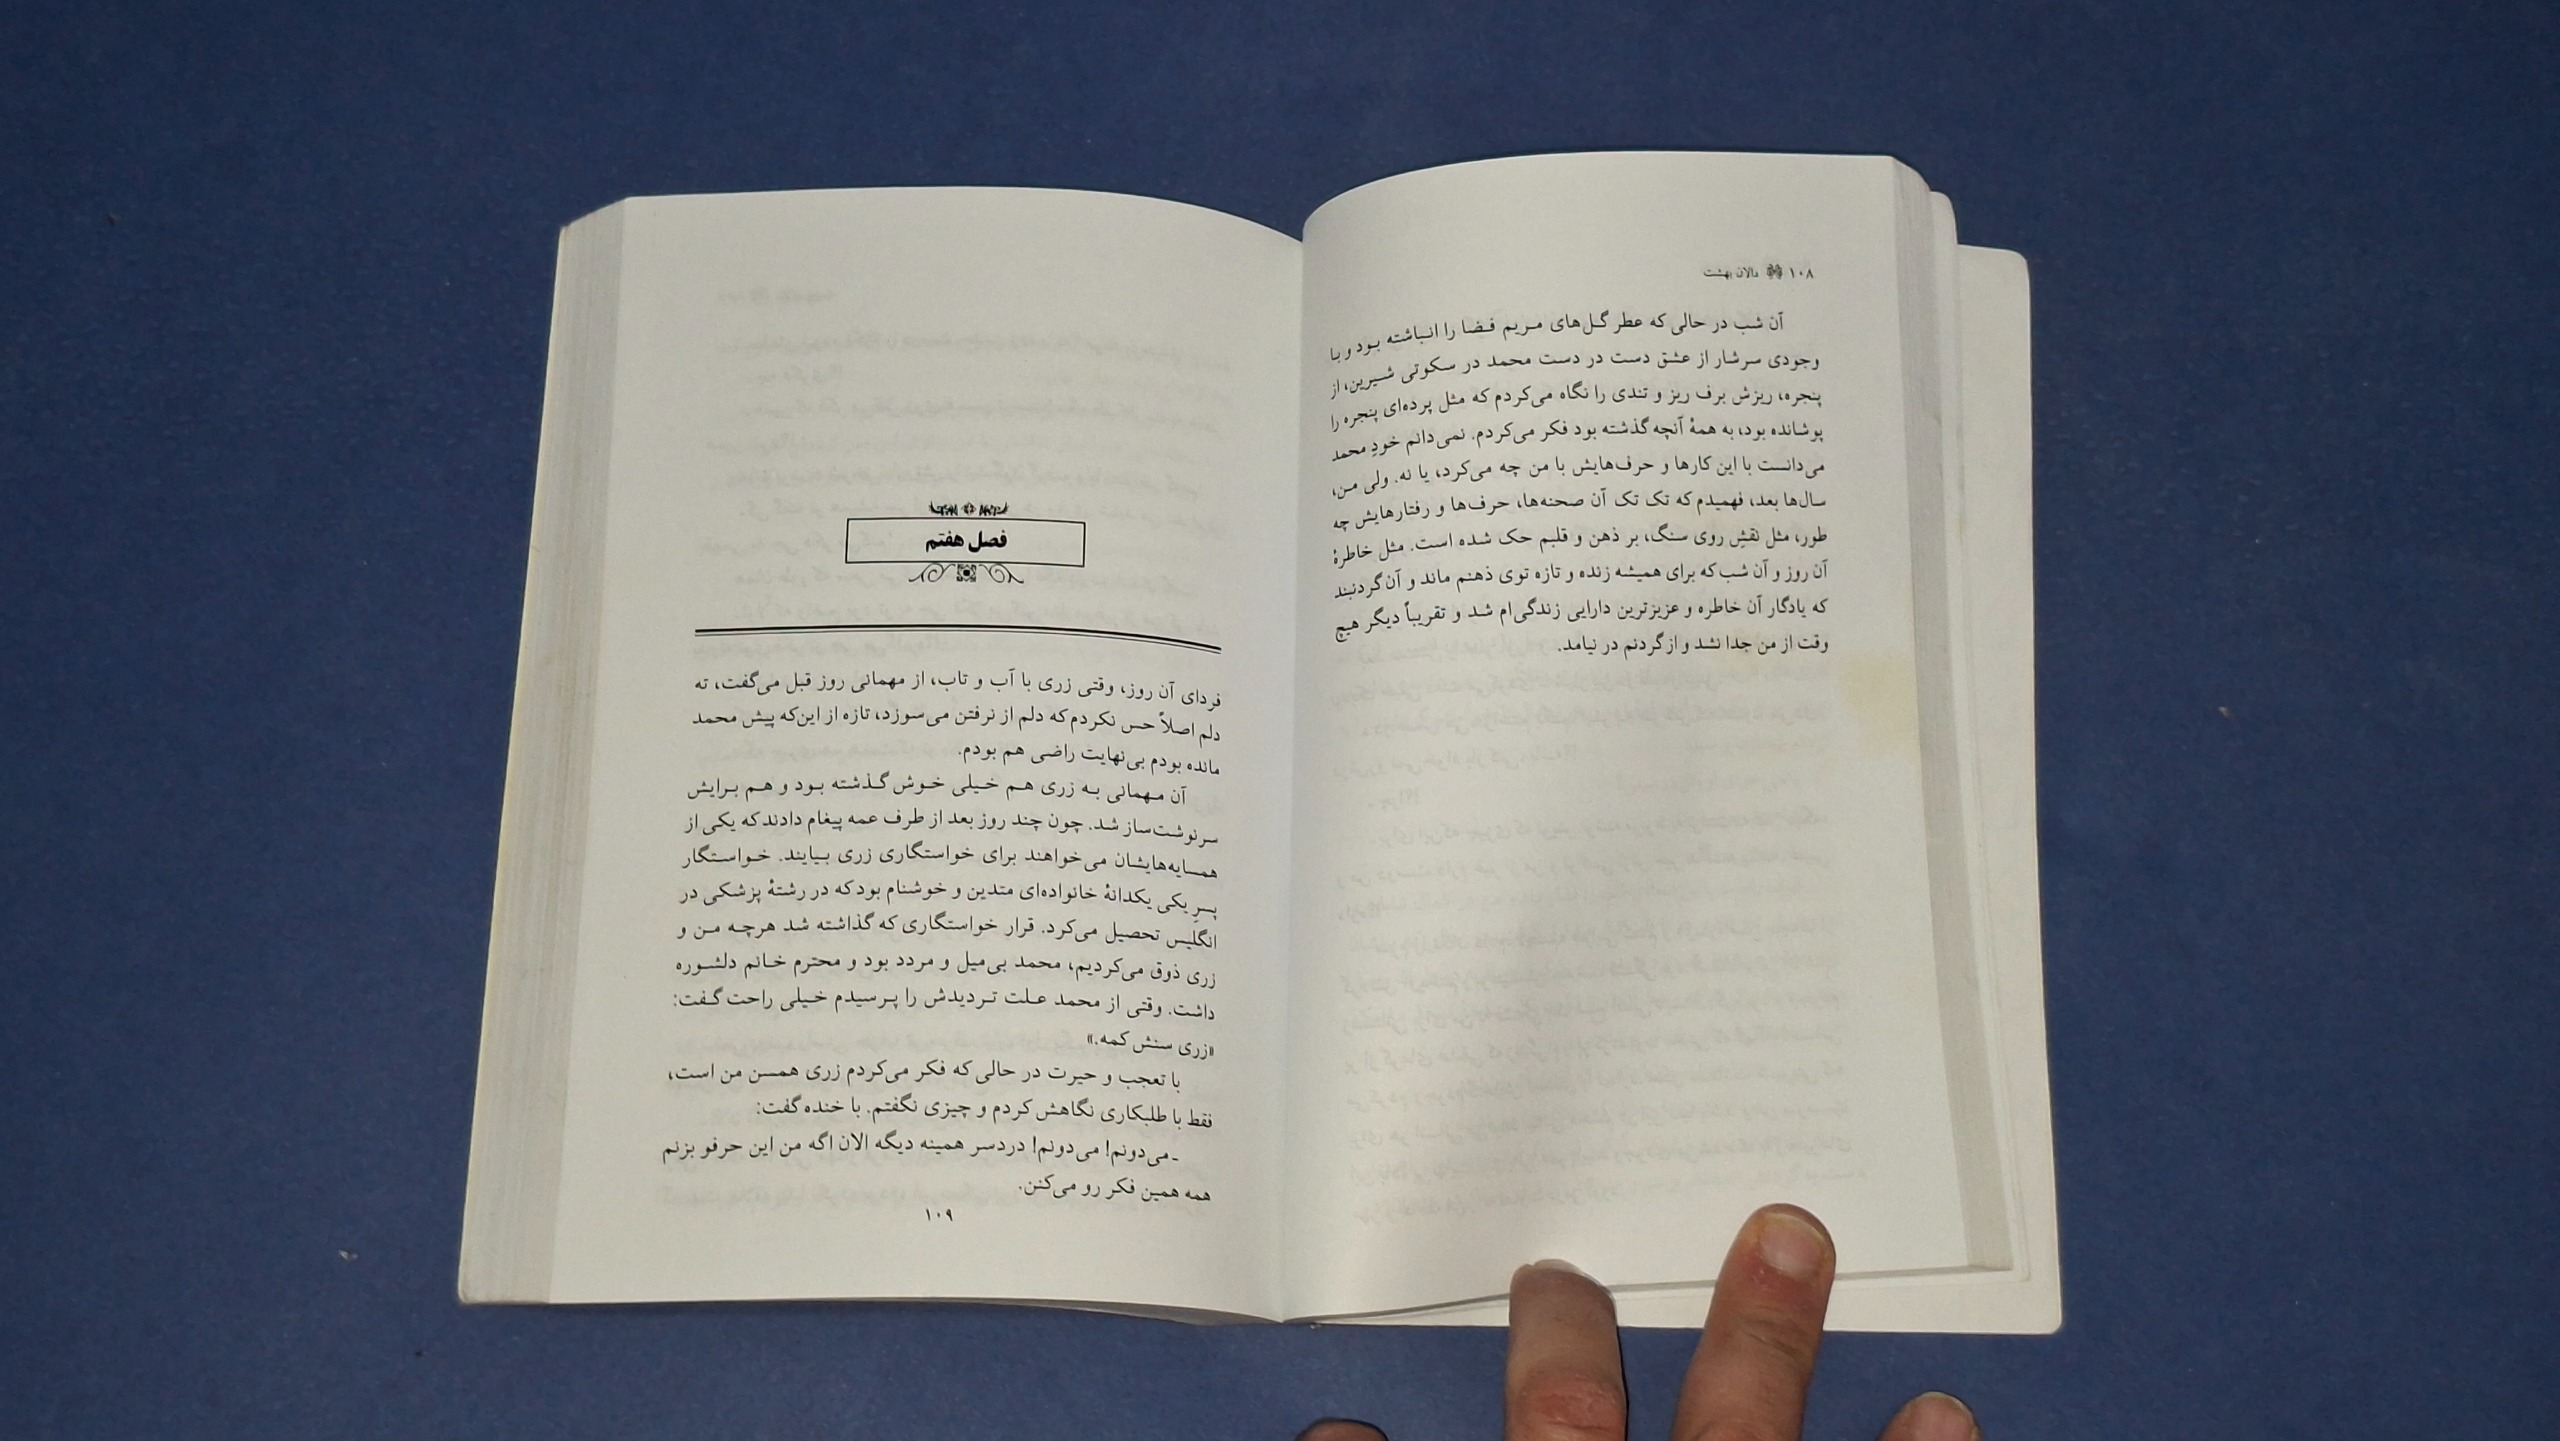 ۱۰۸ دالان بهشت
آن شب در حالی که عطر گل‌های مریم فضا را انباشته بود و با
وجودی سرشار از عشق دست در دست محمد در سکوتی شیرین، از
پنجره، ریزش برف ریز و تندی را نگاه می‌کردم که مثل پرده‌ای پنجره را
پوشانده بود، به همهٔ آنچه گذشته بود فکر می‌کردم. نمی‌دانم خودِ محمد
می‌دانست با این کارها و حرف‌هایش با من چه می‌کرد، یا نه. ولی من،
سال‌ها بعد، فهمیدم که تک تک آن صحنه‌ها، حرف‌ها و رفتارهایش چه
طور، مثل نقشِ روی سنگ، بر ذهن و قلبم حک شده است. مثل خاطرهٔ
آن روز و آن شب که برای همیشه زنده و تازه توی ذهنم ماند و آن گردنبند
که یادگار آن خاطره و عزیزترین دارایی زندگی‌ام شد و تقریباً دیگر هیچ
وقت از من جدا نشد و از گردنم در نیامد.
فصل هفتم
فردای آن روز، وقتی زری با آب و تاب، از مهمانی روز قبل می‌گفت، ته
دلم اصلاً حس نکردم که دلم از نرفتن می‌سوزد، تازه از این‌که پیش محمد
مانده بودم بی‌نهایت راضی هم بودم.
آن مهمانی به زری هم خیلی خوش گذشته بود و هم برایش
سرنوشت‌ساز شد. چون چند روز بعد از طرف عمه پیغام دادند که یکی از
همسایه‌هایشان می‌خواهند برای خواستگاری زری بیایند. خواستگار
پسرِ یکی یکدانهٔ خانواده‌ای متدین و خوشنام بود که در رشتهٔ پزشکی در
انگلیس تحصیل می‌کرد. قرار خواستگاری که گذاشته شد هرچه من و
زری ذوق می‌کردیم، محمد بی‌میل و مردد بود و محترم خانم دلشوره
داشت. وقتی از محمد علت تردیدش را پرسیدم خیلی راحت گفت:
«زری سنش کمه.»
با تعجب و حیرت در حالی که فکر می‌کردم زری همسن من است،
فقط با طلبکاری نگاهش کردم و چیزی نگفتم. با خنده گفت:
ـ می‌دونم! می‌دونم! دردسر همینه دیگه الان اگه من این حرفو بزنم
همه همین فکر رو می‌کنن.
۱۰۹